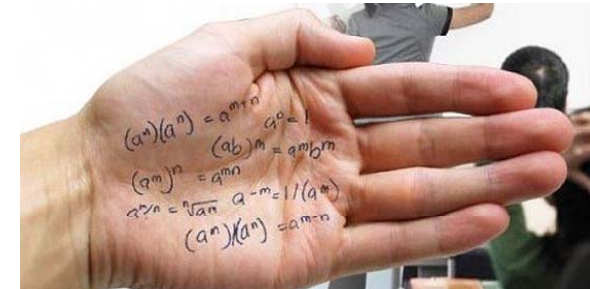 (aᵐ)(aⁿ) = aᵐ⁺ⁿ
a⁰ = 1
(ab)ᵐ = aᵐbᵐ
(aᵐ)ⁿ = aᵐⁿ
a⁻ᵐ = 1/(aᵐ)
(aᵐ)/(aⁿ) = aᵐ⁻ⁿ